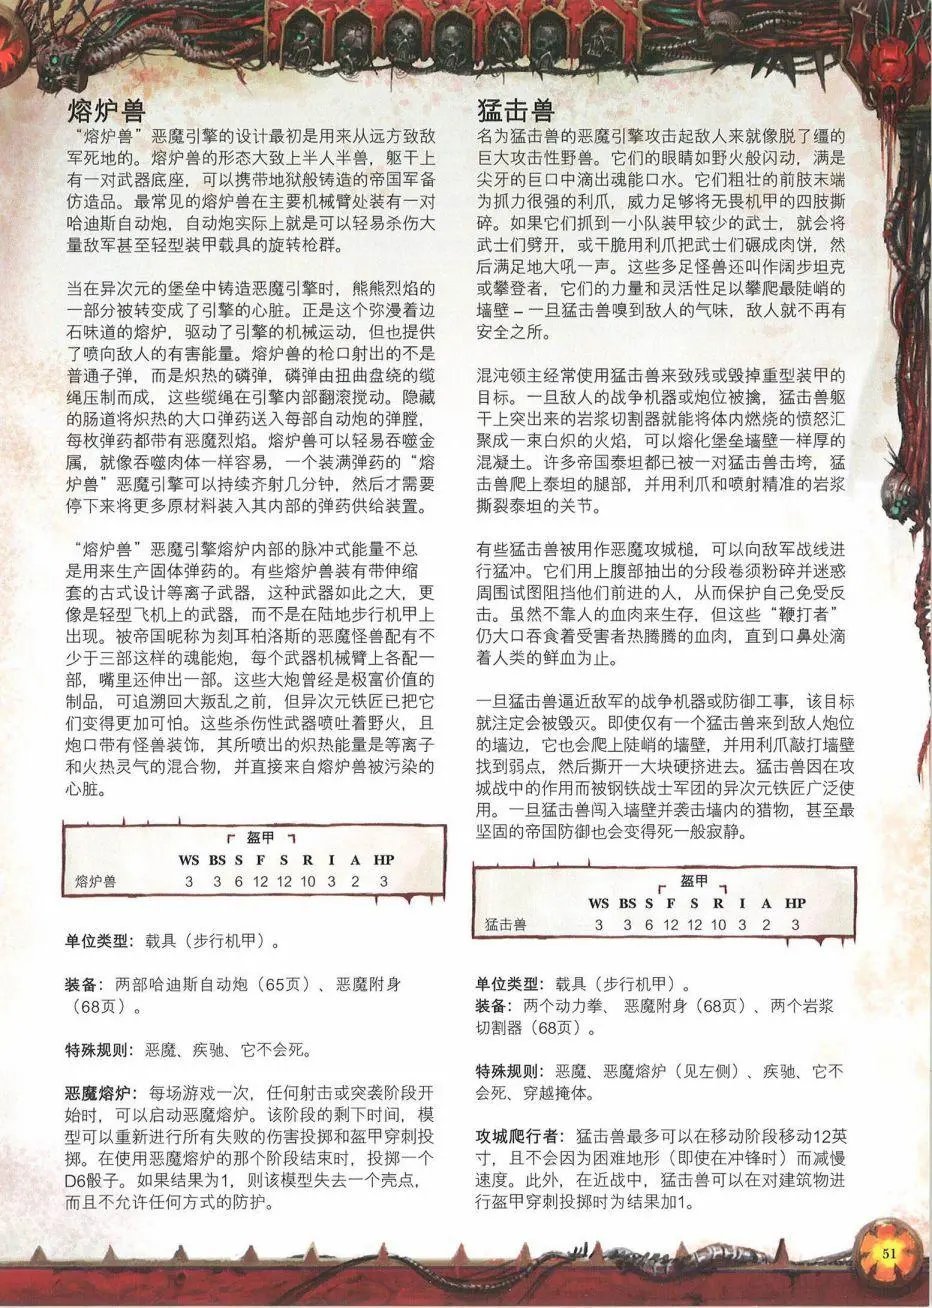 熔炉兽
“熔炉兽”恶魔引擎的设计最初是用来从远方致敌
军死地的。熔炉兽的形态大致上半人半兽，躯干上
有一对武器底座，可以携带地狱般铸造的帝国军备
仿造品。最常见的熔炉兽在主要机械臂处装有一对
哈迪斯自动炮，自动炮实际上就是可以轻易杀伤大
量敌军甚至轻型装甲载具的旋转枪群。
当在异次元的堡垒中铸造恶魔引擎时，熊熊烈焰的
一部分被转变成了引擎的心脏。正是这个弥漫着边
石味道的熔炉，驱动了引擎的机械运动，但也提供
了喷向敌人的有害能量。熔炉兽的枪口射出的不是
普通子弹，而是炽热的磷弹，磷弹由扭曲盘绕的缆
绳压制而成，这些缆绳在引擎内部翻滚搅动。隐藏
的肠道将炽热的大口弹药送入每部自动炮的弹膛，
每枚弹药都带有恶魔烈焰。熔炉兽可以轻易吞噬金
属，就像吞噬肉体一样容易，一个装满弹药的“熔
炉兽”恶魔引擎可以持续齐射几分钟，然后才需要
停下来将更多原材料装入其内部的弹药供给装置。
“熔炉兽”恶魔引擎熔炉内部的脉冲式能量不总
是用来生产固体弹药的。有些熔炉兽装有带伸缩
套的古式设计等离子武器，这种武器如此之大，更
像是轻型飞机上的武器，而不是在陆地步行机甲上
出现。被帝国昵称为刻耳柏洛斯的恶魔怪兽配有不
少于三部这样的魂能炮，每个武器机械臂上各配一
部，嘴里还伸出一部。这些大炮曾经是极富价值的
制品，可追溯回大叛乱之前，但异次元铁匠已把它
们变得更加可怕。这些杀伤性武器喷吐着野火，且
炮口带有怪兽装饰，其所喷出的炽热能量是等离子
和火热灵气的混合物，并直接来自熔炉兽被污染的
心脏。
盔甲
WS BS S F S R I A HP
熔炉兽 3 3 6 12 12 10 3 2 3
单位类型：载具（步行机甲）。
装备：两部哈迪斯自动炮（65页）、恶魔附身
（68页）。
特殊规则：恶魔、疾驰、它不会死。
恶魔熔炉：每场游戏一次，任何射击或突袭阶段开
始时，可以启动恶魔熔炉。该阶段的剩下时间，模
型可以重新进行所有失败的伤害投掷和盔甲穿刺投
掷。在使用恶魔熔炉的那个阶段结束时，投掷一个
D6骰子。如果结果为1，则该模型失去一个壳点，
而且不允许任何方式的防护。
猛击兽
名为猛击兽的恶魔引擎攻击起敌人来就像脱了缰的
巨大攻击性野兽。它们的眼睛如野火般闪动，满是
尖牙的巨口中滴出魂能口水。它们粗壮的前肢末端
为抓力很强的利爪，威力足够将无畏机甲的四肢撕
碎。如果它们抓到一小队装甲较少的武士，就会将
武士们劈开，或干脆用利爪把武士们碾成肉饼，然
后满足地大吼一声。这些多足怪兽还叫作阔步坦克
或攀登者，它们的力量和灵活性足以攀爬最陡峭的
墙壁 – 一旦猛击兽嗅到敌人的气味，敌人就不再有
安全之所。
混沌领主经常使用猛击兽来致残或毁掉重型装甲的
目标。一旦敌人的战争机器或炮位被擒，猛击兽躯
干上突出来的岩浆切割器就能将体内燃烧的愤怒汇
聚成一束白炽的火焰，可以熔化堡垒墙壁一样厚的
混凝土。许多帝国泰坦都已被一对猛击兽击垮，猛
击兽爬上泰坦的腿部，并用利爪和喷射精准的岩浆
撕裂泰坦的关节。
有些猛击兽被用作恶魔攻城槌，可以向敌军战线进
行猛冲。它们用上腹部抽出的分段卷须粉碎并迷惑
周围试图阻挡他们前进的人，从而保护自己免受反
击。虽然不靠人的血肉来生存，但这些“鞭打者”
仍大口吞食着受害者热腾腾的血肉，直到口鼻处滴
着人类的鲜血为止。
一旦猛击兽逼近敌军的战争机器或防御工事，该目标
就注定会被毁灭。即使仅有一个猛击兽来到敌人炮位
的墙边，它也会爬上陡峭的墙壁，并用利爪敲打墙壁
找到弱点，然后撕开一大块硬挤进去。猛击兽因在攻
城战中的作用而被钢铁战士军团的异次元铁匠广泛使
用。一旦猛击兽闯入墙壁并袭击墙内的猎物，甚至最
坚固的帝国防御也会变得死一般寂静。
盔甲
WS BS S F S R I A HP
猛击兽 3 3 6 12 12 10 3 2 3
单位类型：载具（步行机甲）。
装备：两个动力拳、 恶魔附身（68页）、两个岩浆
切割器（68页）。
特殊规则：恶魔、恶魔熔炉（见左侧）、疾驰、它不
会死、穿越掩体。
攻城爬行者：猛击兽最多可以在移动阶段移动12英
寸，且不会因为困难地形（即使在冲锋时）而减慢
速度。此外，在近战中，猛击兽可以在对建筑物进
行盔甲穿刺投掷时为结果加1。
51